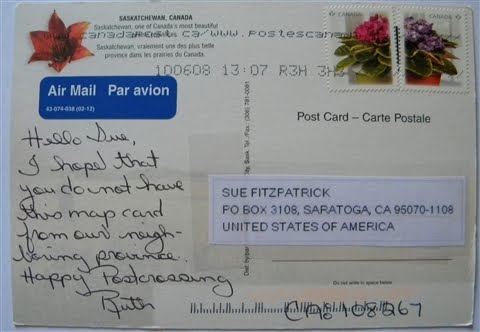 SASKATCHEWAN, CANADA
Saskatchewan, one of Canada's most beautiful
Saskatchewan, vraiment une des plus belle
province dans les prairies du Canada.
www.canadapost.ca/www.postescan
100608 13:07 R3H 3H
CANADA
CANADA
Air Mail Par avion
43-074-038 (02-12)
Post Card – Carte Postale
Hello Sue,
I hope that
you do not have
this map card
from our neigh-
boring province.
Happy Postcrossing
Ruth
SUE FITZPATRICK
PO BOX 3108, SARATOGA, CA 95070-1108
UNITED STATES OF AMERICA
Sask. Tel./Fax. (306) 781-0081
Do not write in space below
CA 108267